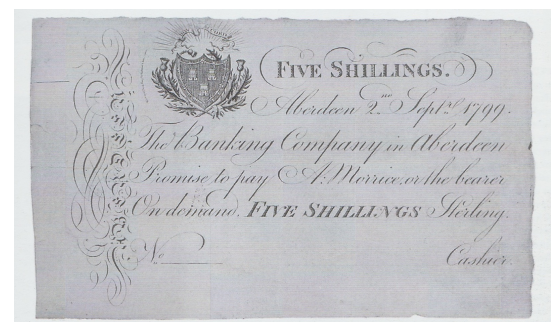 FIVE SHILLINGS.
Aberdeen 2.nd Sept.r 1799.
The Banking Company in Aberdeen
Promise to pay A: Morrice, or the bearer
On demand. FIVE SHILLINGS Sterling.
No
Cashier.